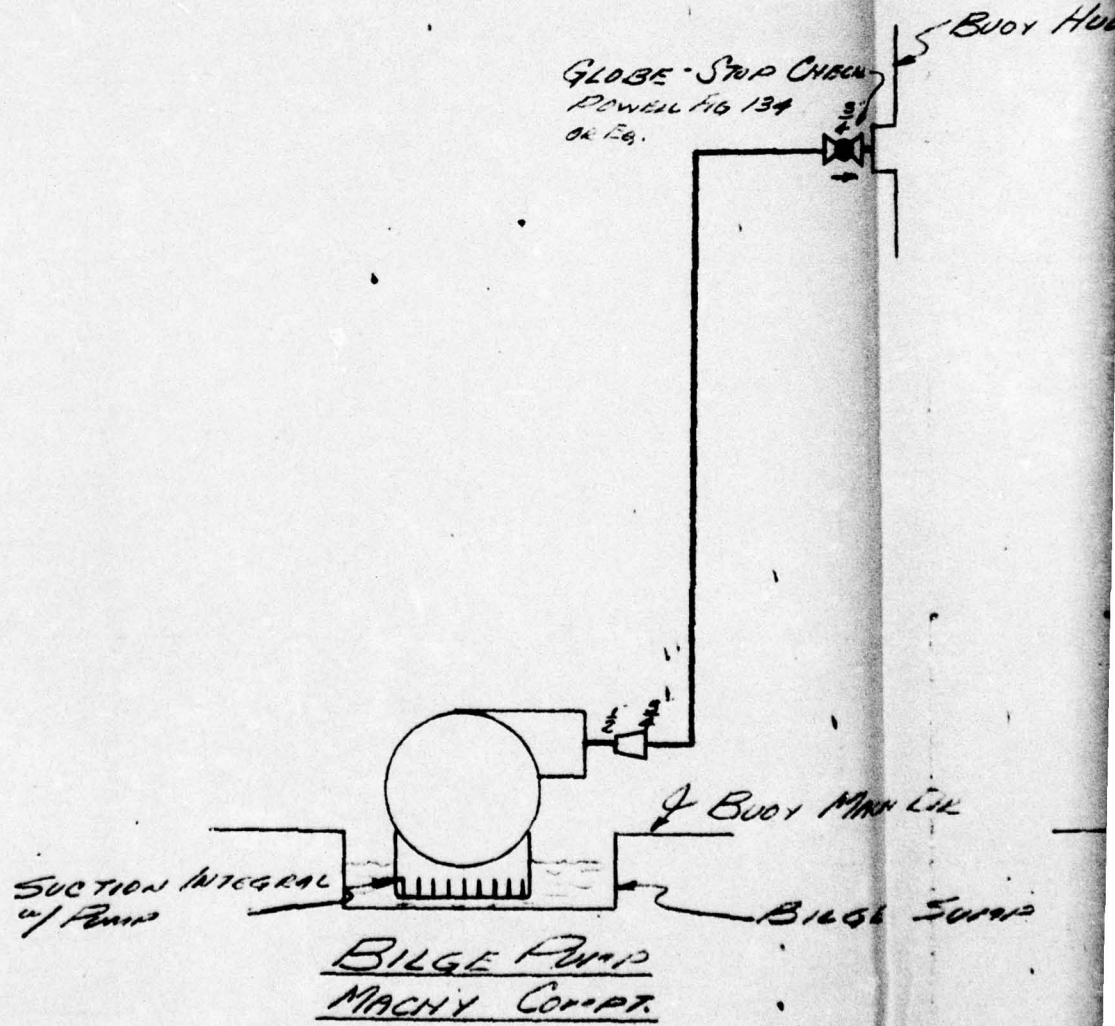 BUOY
GLOBE-STOP CHECK
POWELL FIG 134
OR EQ.
3/4"
BUOY MAIN DK
SUCTION INTEGRAL
w/ PUMP
BILGE SUMP
BILGE PUMP
MACH'Y COMPT.